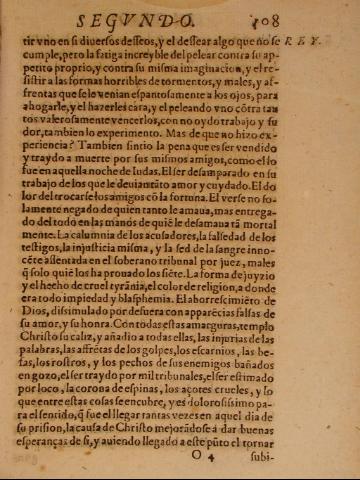 SEGVNDO. 108
tir vno en si diuersos desseos, y el dessear algo que no se R E Y.
cumple, pero la fatiga increyble del pelear contra su ap-
petito proprio, y contra su misma imaginacion, y el re-
sistir a las formas horribles de tormentos, y males, y af-
frentas que se le venian espantosamente a los ojos, para
ahogarle, y el hazerles cara, y el peleando vno cõtra tan
tos valerosamente vencerlos, con no oydo trabajo y su
dor, tambien lo experimento. Mas de que no hizo ex-
periencia? Tambien sintio la pena que es ser vendido
y traydo a muerte por sus mismos amigos, como el lo
fue en aquella noche de Iudas. El ser desamparado en su
trabajo de los que le deuian tãto amor y cuydado. El do
lor del trocarse los amigos cõ la fortuna. El verse no so-
lamente negado de quien tanto le amaua, mas entrega-
do del todo en las manos de quiẽ le desamaua tã mortal
mente. La calumnia de los acusadores, la falsedad de los
testigos, la injusticia misma, y la sed de la sangre inno-
cẽte assentada en el soberano tribunal por juez, males
q̃ solo quien los ha prouado los siẽte. La forma de juyzio
y el hecho de cruel tyrãnia, el color de religion, a donde
era todo impiedad y blasphemia. El aborrescimiẽto de
Dios, dissimulado por defuera con apparẽcias falsas de
su amor, y su honra. Con todas estas amarguras, templo
Christo su caliz, y añadio a todas ellas, las injurias de las
palabras, las affrẽtas de los golpes, los escarnios, las be-
fas, los rostros, y los pechos de sus enemigos bañados
en gozo, el ser traydo por mil tribunales, el ser estimado
por loco, la corona de espinas, los açotes crueles, y lo
que entre estas cosas se encubre, y es dolorosissimo pa-
ra el sentido, q̃ fue el llegar tantas vezes en aquel dia de
su prision, la causa de Christo mejorãdose a dar buenas
esperanças de si, y auiendo llegado a este pũto el tornar
O 4 subi-